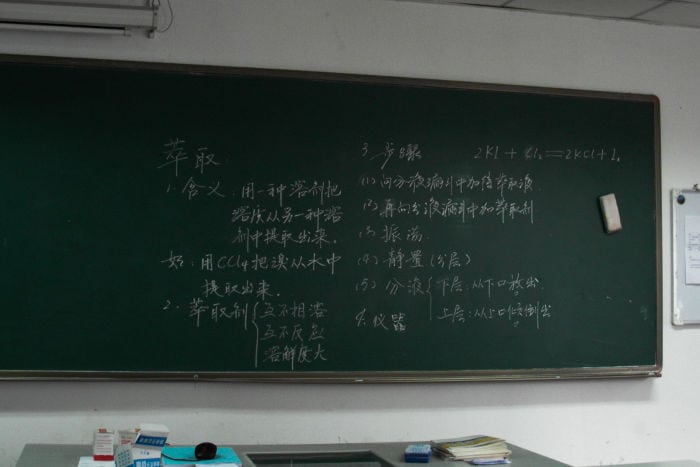 萃取:
1. 含义: 用一种溶剂把
溶质从另一种溶
剂中提取出来.
如: 用CCl4把溴从水中
提取出来.
2. 萃取剂 { 互不相溶
互不反应
溶解度大
3. 步骤 2KI + Cl2 = 2KCl + I2
(1) 向分液漏斗中加待萃取液.
(2) 再向分液漏斗中加萃取剂
(3) 振荡
(4) 静置 (分层)
(5) 分液 { 下层: 从下口放出.
上层: 从上口倾倒出
4. 仪器